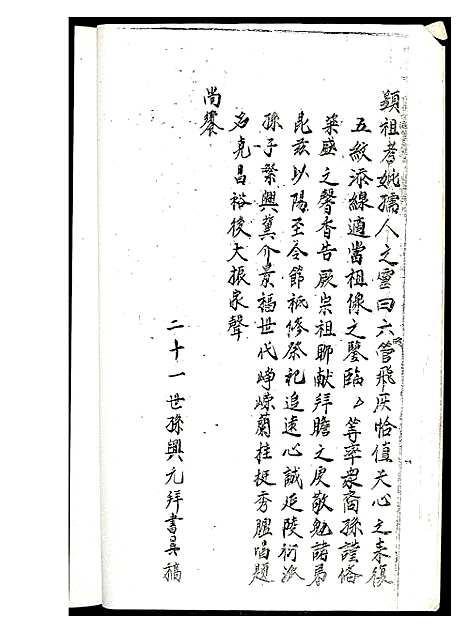 顯祖考妣孺人之靈曰六管飛灰恰值天心之来復
五紋添線適當祖像之鑒臨々等率眾裔孫謹脩
粢盛之馨香告厥宗祖聊献拜瞻之虔敬勉諸昆
昆兹以陽至令節祗修祭祀追遠心誠延陵衍派
孫子繁興冀介景福世代崢嶸蘭挂挺秀臚唱題
名克昌裕後大振家聲
尚饗
二十一世孫興元拜書呈稿